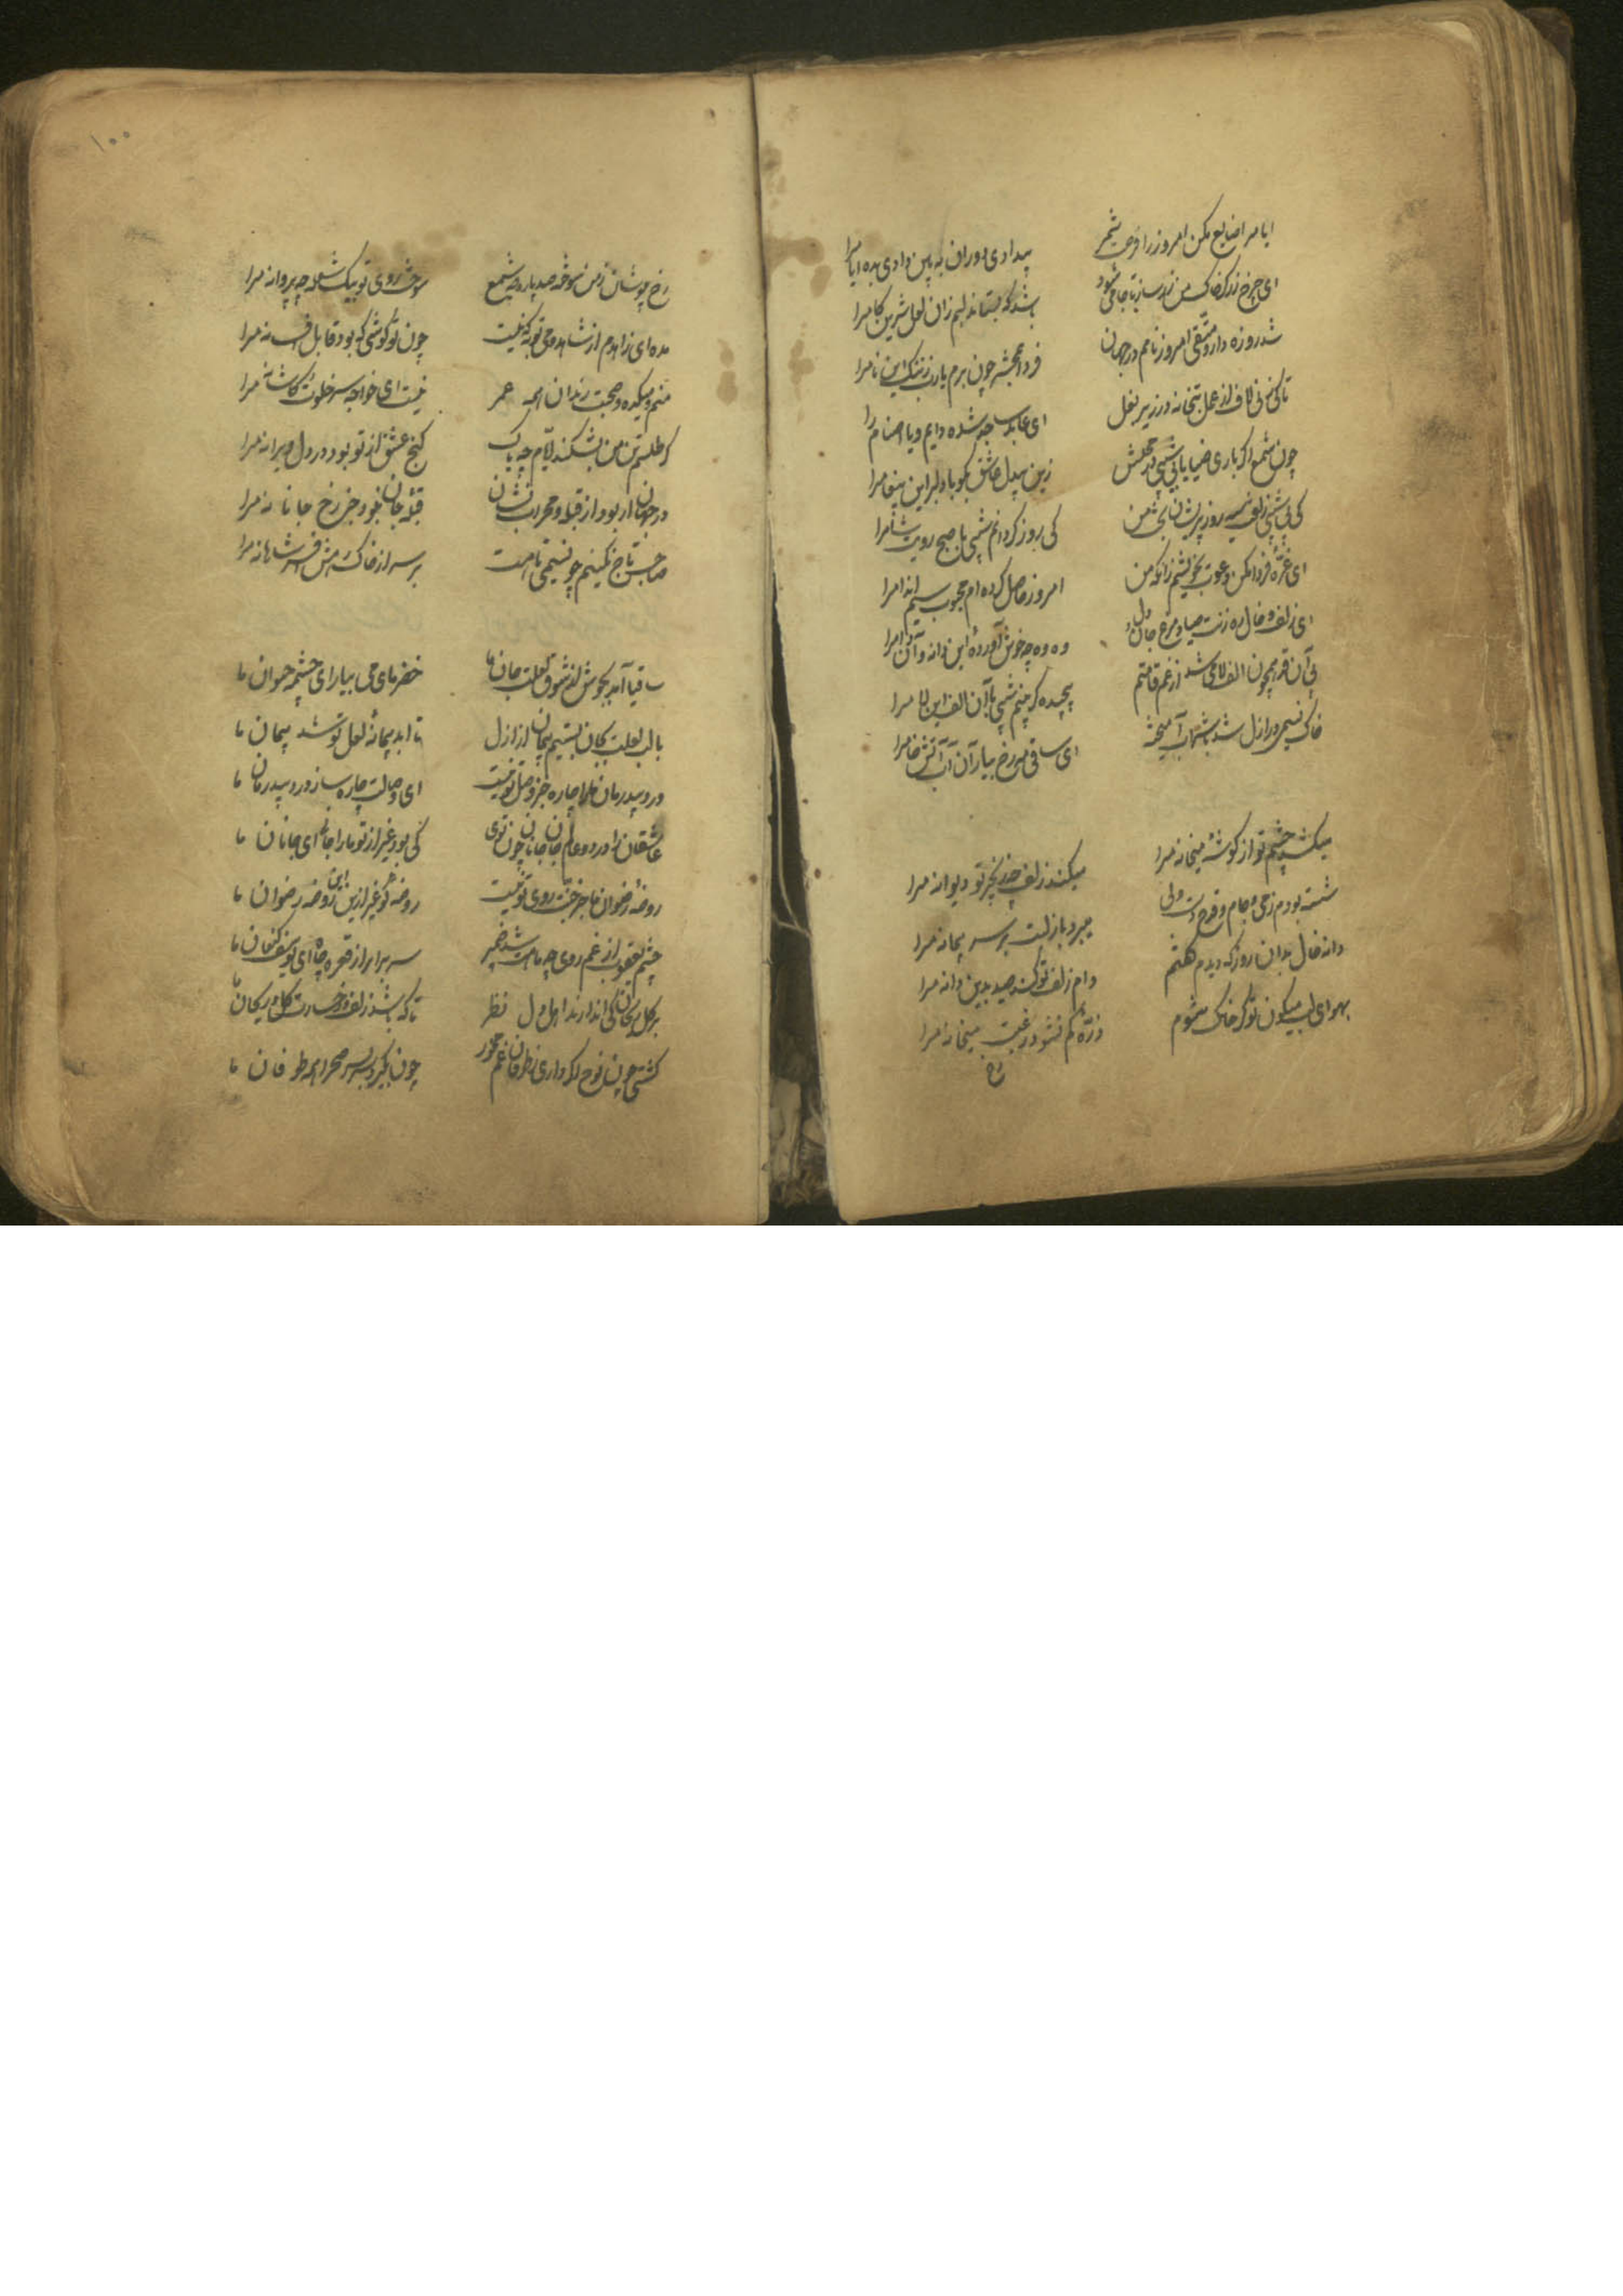 ایام را ضایع مکن امروز را فرصت شمر
بیدادی دوران به بین دادی بده ایام را
ای چرخ زرگر خاک من زرساز تا جامی شود
باشد که بستاند لبم زان لعل شیرین کام را
شد روزه دار و متقی امروز نامم در جهان
فردا بمحشر چون برم یارب ز ننگ این نام را
تا کی زنی لاف از عمل بتخانه در زیر بغل
ای عابد ساجد شده دایم و یا اصنام را
چون شمع اگر باری ضیا یابی شبی در مجلسش
زین بیدل عاشق بگو با دلبر این پیغام را
کی بی شب زلف سیه روز پریشان بخت من
کی روز گردانم شبی با صبح رویت شام را
ای غره فردا مکن دعوت بخویشم زانکه من
امروز حاصل کرده ام محبوب سیم اندام را
ای زلف و خال رهزنت صیاد مرغ جان و دل
وه وه چه خوش آورده این دانه و آن دام را
بی آن قد همچون الف لامی شد از غم قامتم
پیچیده کی بینم شبی با آن الف این لام را
خاک نسیمی در ازل شد با شراب آمیخته
ای ساقی مه رخ بیار آن آب آتش فام را
میکشد چشم تو از گوشه میخانه مرا
میکند زلف چو زنجیر تو دیوانه مرا
شسته بودم ز می و جام و قدح دست ولی
میبرد باز لبت بر سر پیمانه مرا
دانه خال بدان روز که دیدم گفتم
دام زلف تو کند صید بدین دانه مرا
بهوای لب میگون تو گر خاک شوم
ذره کم نشود رغبت میخانه مرا
رخ
۱۰۰
رخ مپوشان ز من سوخته صد بار چو شمع
سوخت روی تو بیک شعله چو پروانه مرا
مده ای زاهدم از شاهد و می توبه که نیست
چون تو گوشی که بود قابل افسانه مرا
منم و میکده و صحبت رندان همه عمر
نیست ای خواجه سر خلوت کاشانه مرا
گر طلسم تن من بشکند ایام چه باک
گنج عشق از تو بود در دل ویرانه مرا
در جهان ار بود از قبله و محراب نشان
قبله جان نبود جز رخ جانانه مرا
صاحب تاج نگینم چو نسیمی تا هست
بر سر از خاک درش افسر شاهانه مرا
ساقیا آمد بجوش از شوق لعلت جان ما
خضر مای می بیار ای چشمه حیوان ما
با لب لعلت بجان بستیم پیمان از ازل
تا ابد پیمانه لعل تو شد پیمان ما
درد بیدرمان ما را چاره جز وصل تو نیست
ای وصالت چاره ساز درد بیدرمان ما
عاشقان را در دو عالم جان جانان چون توی
کی بود غیر از تو ما را جان ای جانان ما
روضه رضوان ما جز جنت روی تو نیست
روضه کو غیر ازین ای روضه رضوان ما
چشم یعقوب از غم روی چو ماهت شد ضریر
سر برار از قعر چاه ای یوسف کنعان ما
بر گل و ریحان کی اندازند اهل دل نظر
تا که باشد زلف و رخسارت گل و ریحان ما
کشتی چون نوح اگر داری ز طوفان غم مخور
چون بگیرد بسر صحرا همه طوفان ما